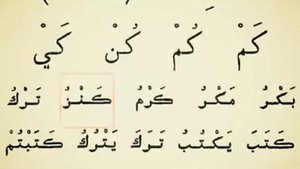 كَمْ كُمْ كُنْ كَيْ
بَكْرُ مَكْرُ كَرْمُ كَنْزُ تَرْكُ
كَتَبَ يَكْتُبُ تَرَكَ يَتْرُكُ كَتَبْتُمْ